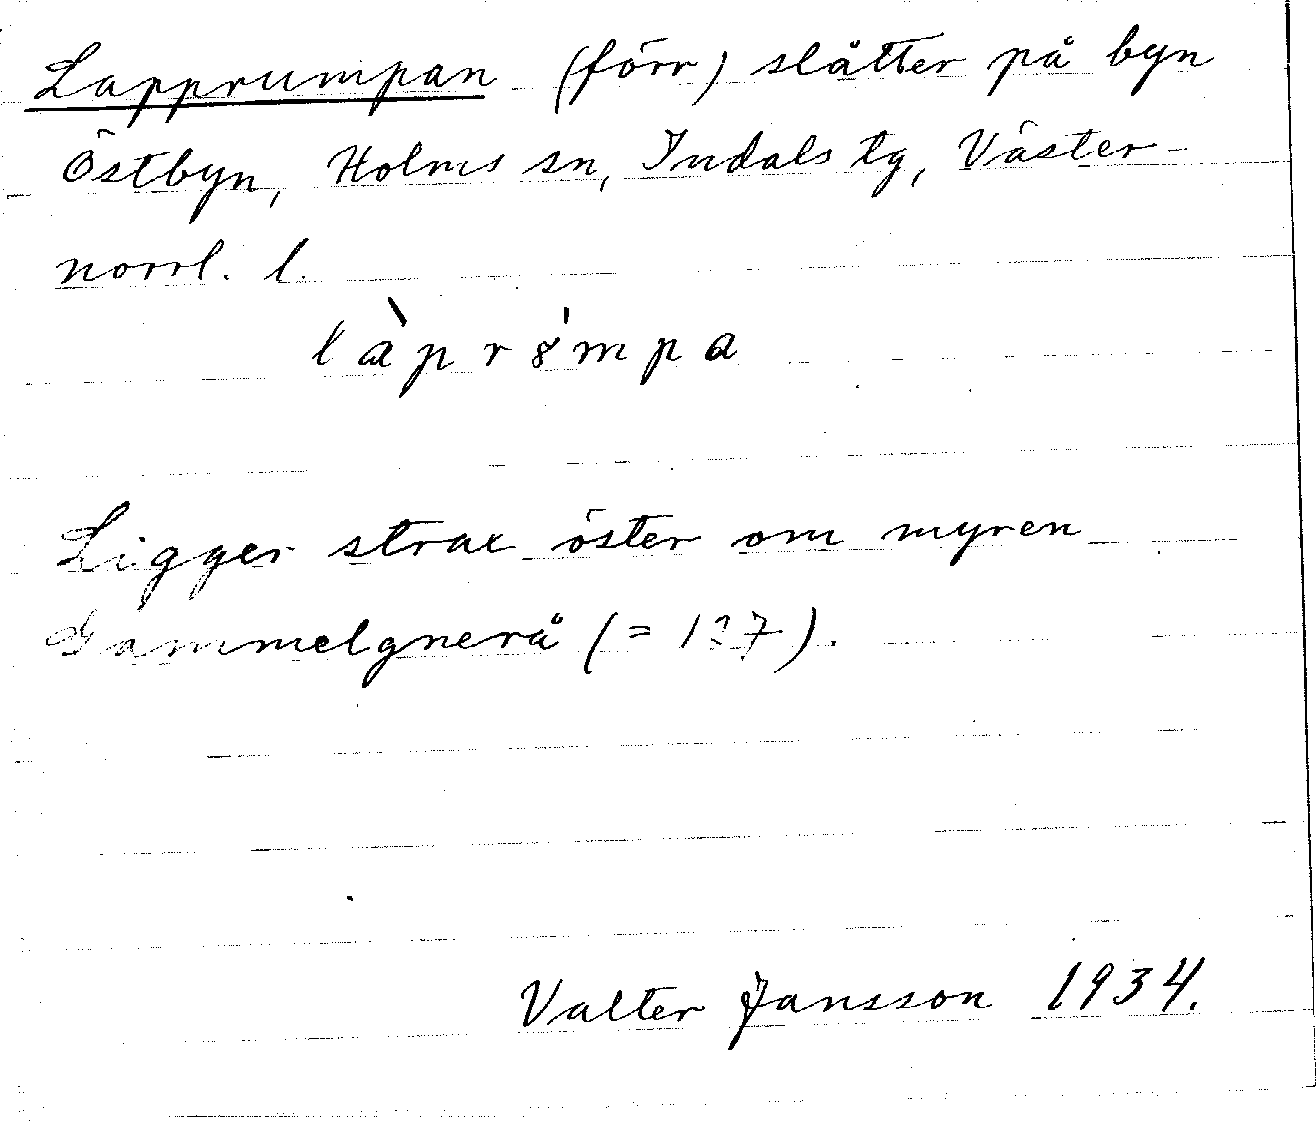 Lapprumpan (förr) slåtter på byn
Östbyn, Holms sn, Indals tg, Väster-
norrl. l.
làpr8́mpa
Ligger strax öster om myren
Gammelgnerå (= 137).
Valter Jansson 1934.